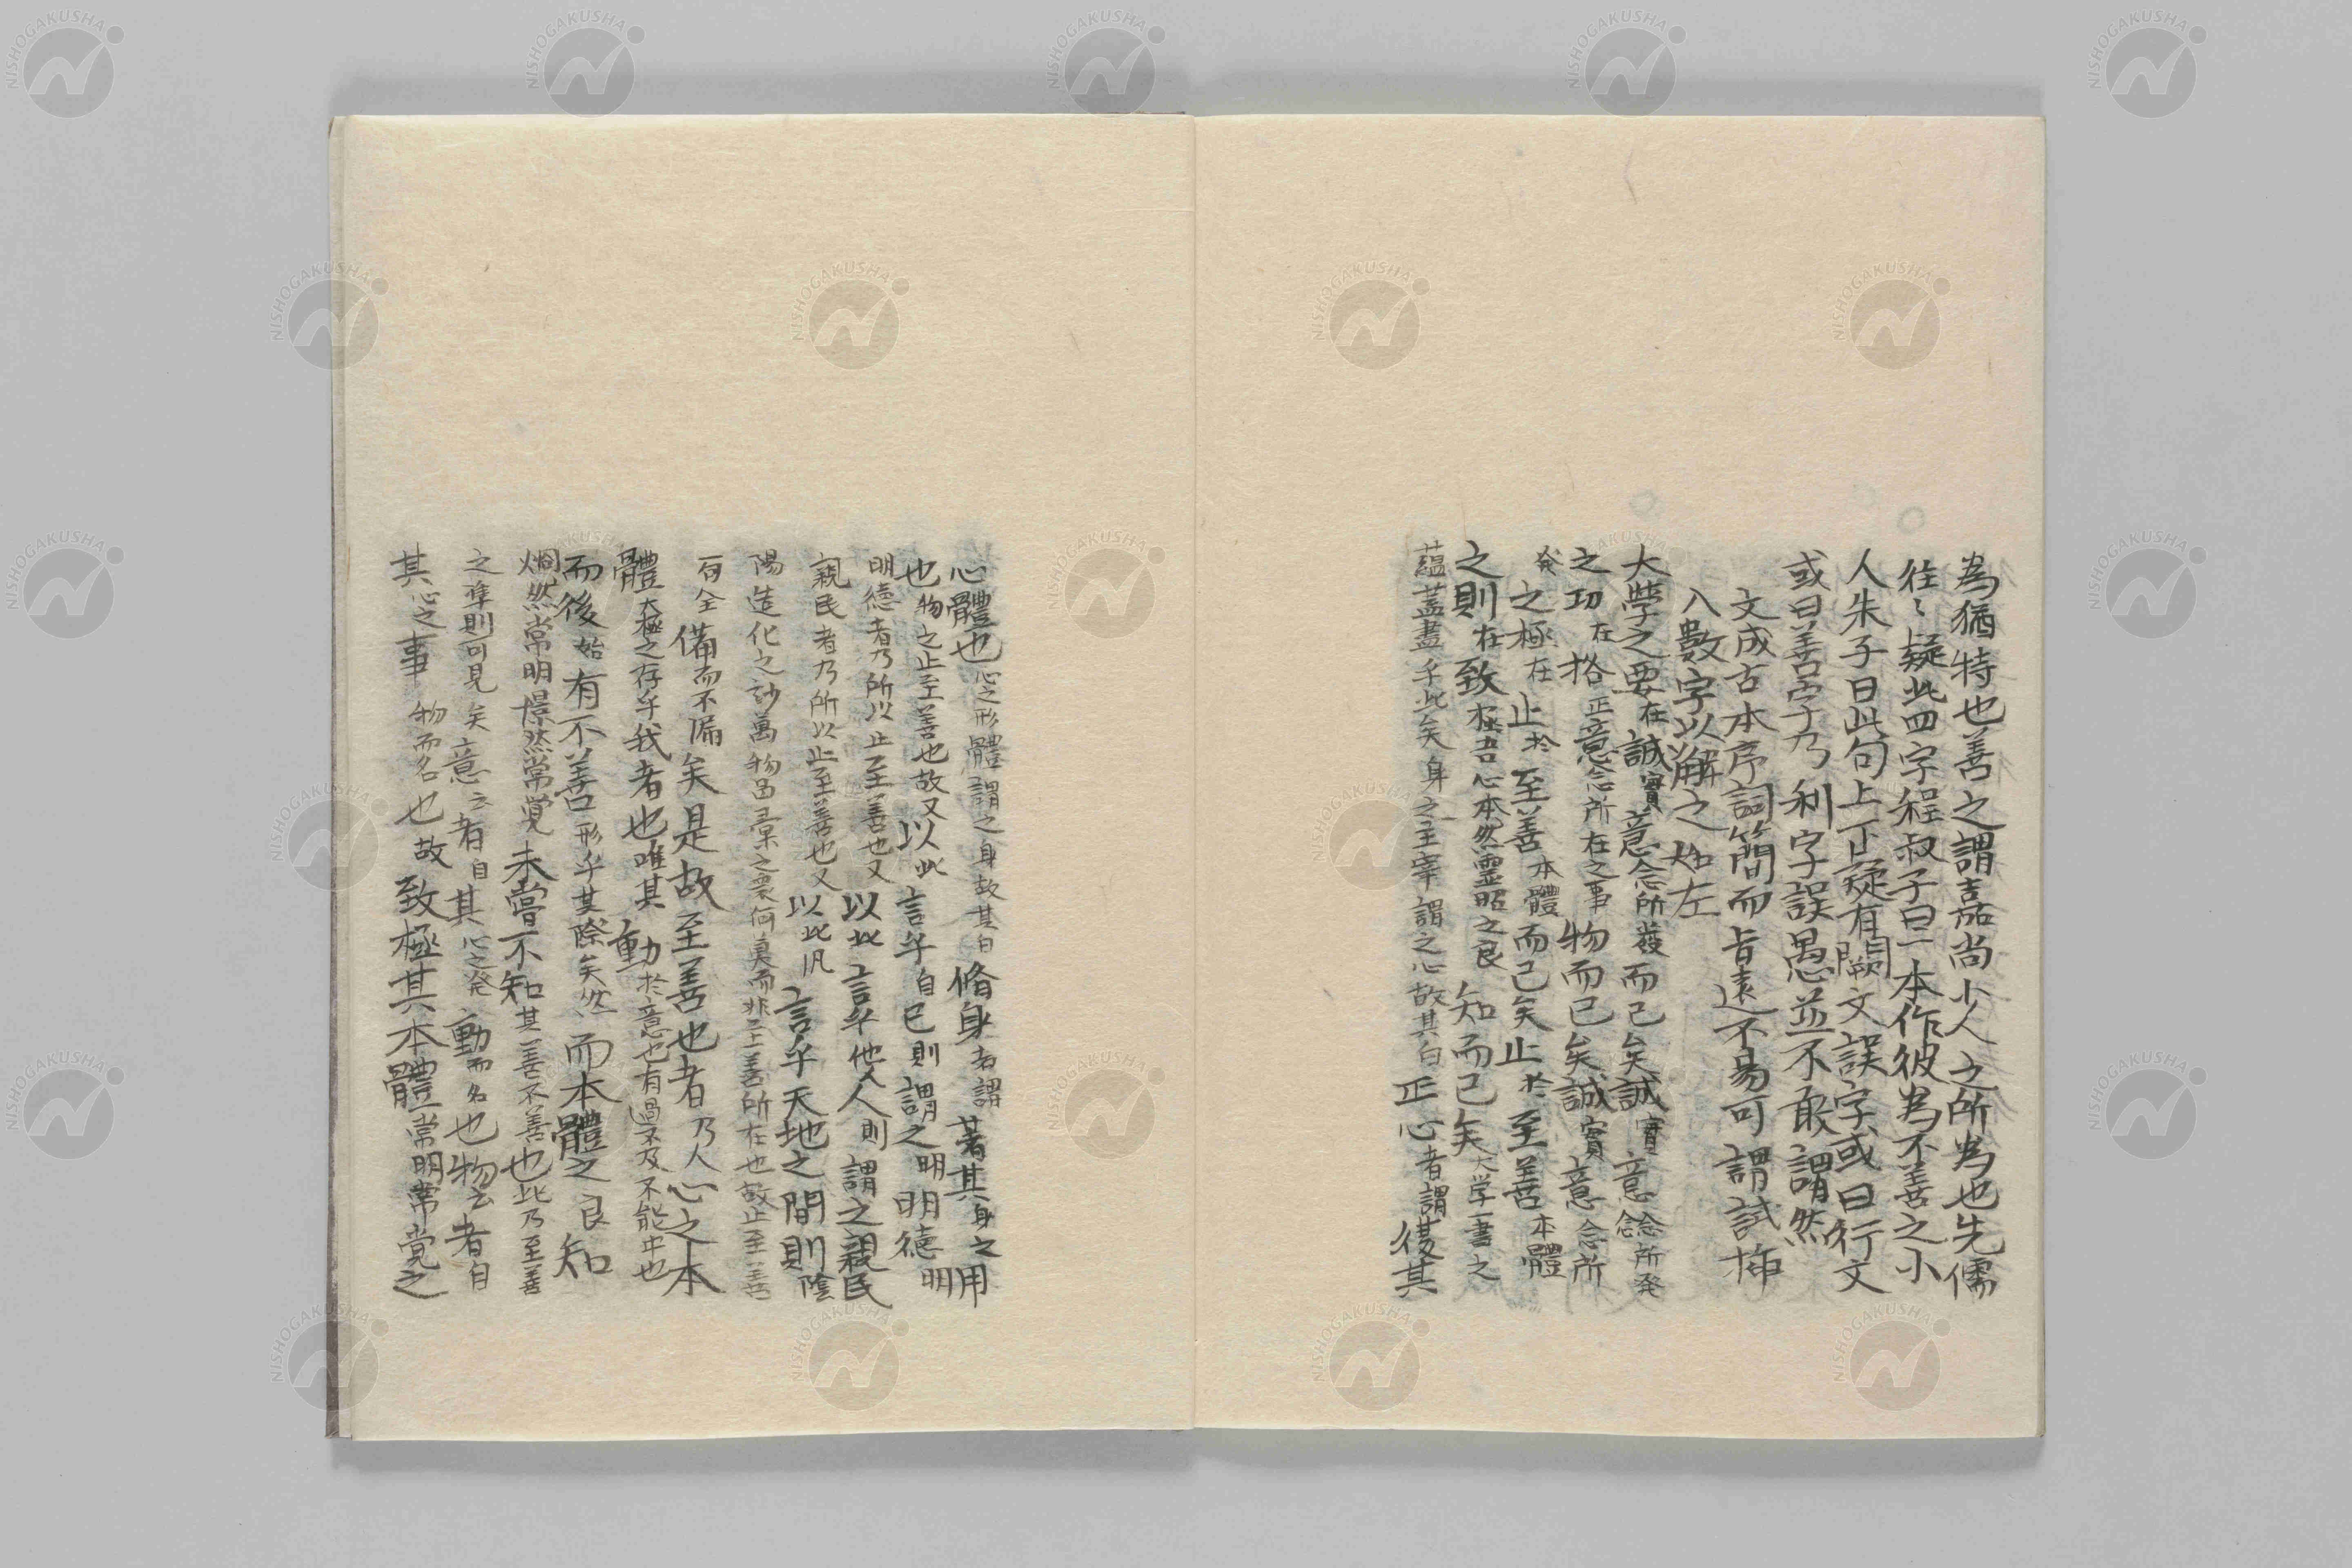 為猶特也善之謂嘉尚小人之所為也先儒
往々疑此四字程叔子曰一本作彼為不善之小
人朱子曰此句上下疑有闕文誤字或曰行文
或曰善字乃利字誤愚並不敢謂然
文成古本序詞簡而旨遠不易可謂試挿
入數字以觧之如左
大學之要在誠實意念所發而已矣誠實意念所発
之功在格正意念所在之事物而已矣誠實意念所
発之極在止於至善本體而已矣止於至善本體
之則在致極吾心本然靈昭之良知而已矣大学一書之
蘊蓋盡乎此矣身之主宰謂之心故其曰正心者謂復其
心體也心之形體謂之身故其曰脩身者謂著其身之用
也物之止至善也故又以此言乎自己則謂之明明德明
明德者乃所以止至善也又以此言乎他人則謂之親民
親民者乃所以止至善也又以此汎言乎天地之間則陰
陽造化之妙萬物品彙之衆何莫而非至善所在也故止至善
一句全備而不漏矣是故至善也者乃人心之本
體大極之存乎我者也唯其動於意也有過不及不能中也
而後始有不善形乎其際矣然而本體之良知
烱然常明憬然常覚未嘗不知其善不善也此乃至善
之準則可見矣意云者自其心之発動而名也物云者自
其心之事物而名也故致極其本體常明常覚之